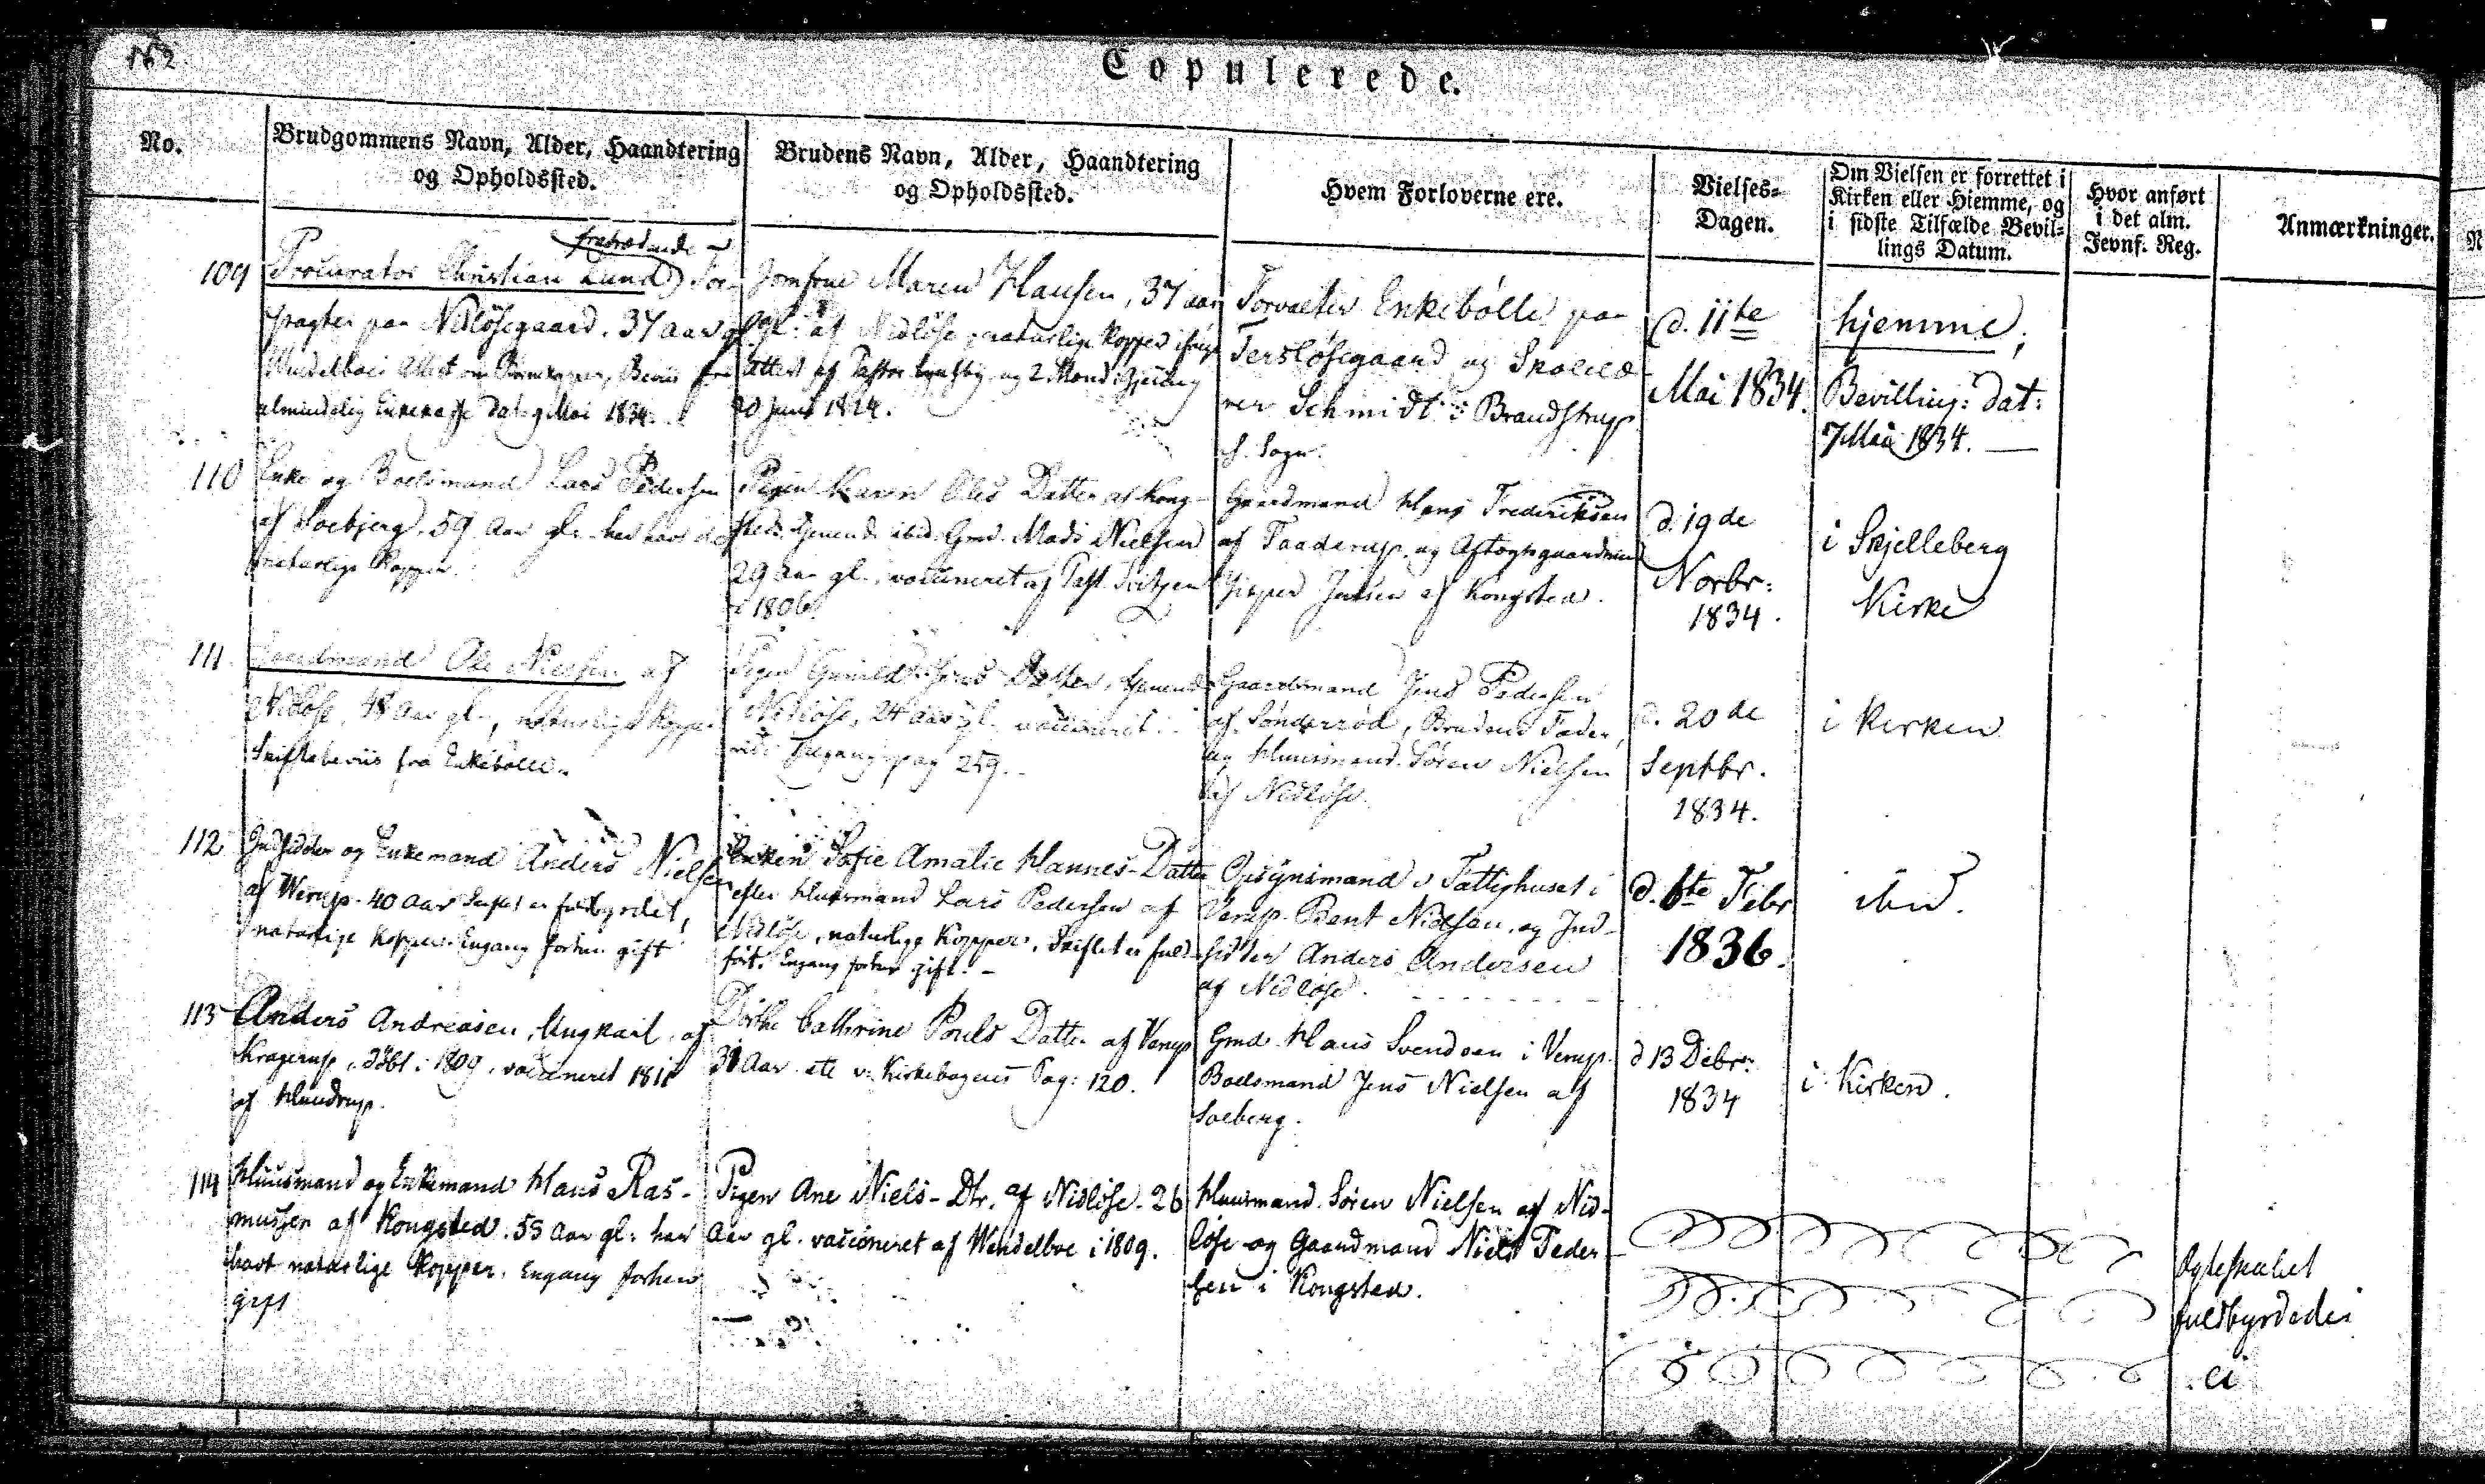 152.
Copulerede.
No.
Brudgommens Navn, Alder, Haandtering
og Opholdssted.
Brudens Navn, Alder, Haandtering
og Opholdssted.
Hvem Forloverne ere.
Vielses-
Dagen.
Om Vielsen er forrettet i
Kirken eller Hiemme, og
i sidste Tilfælde Bevil-
lings Datum.
Hvor anført
i det alm.
Jevnf. Reg.
Anmærkninger.
109
fratrædende
Procurator Christian Lund For-
pagter paa Nidløsegaard. 37 aar gl.
Wendelboes Attest om
almindelig Enkekasse dat. 9 Mai 1834.
Jomfrue Maren Hansen, 37 aar
gl. af Nidløse; naturlige Kopper
Attest af Pastor
20 Juni 1824.
Forvalter Enkebølle paa
Tersløsegaard og Skolelæ-
rer Schmidt i Brandstrup
S. Sogn.
d. 11te
Mai 1834.
hjemme;
Bevilling: dat:
7 Mai 1834.
110
Enke og Boelsmand Lars Pedersen
af Soebjerg. 59 Aar gl. har havt de
naturlige Kopper.
Pigen Karen Oles Datter af Kong-
sted. tjenende ibid. Gmd. Mads Nielsen
29 Aar gl. vaccineret af Past.
i 1806.
Gaardmand Hans Frederiksen
af Taaderup. og Aftægtsgaardmand
Jesper Jensen af Kongsted.
d. 19de
Novbr:
1834.
i Skjelleberg
Kirke
111
Gaardmand Ole Nielsen af
Nidløse, 48 Aar gl., naturlige Kopper
Skiftebeviis fra Enkebølle.
Pigen Gunild Jens Datter, tjenende
Nidløse, 24 Aar gl. vaccineret.
vid. Tilgang pag 259.
Gaardmand Jens Pedersen
af Sønderød, Brudens Fader,
og Huusmand Søren Nielsen
af Nidløse.
d. 20de
Septbr.
1834.
i Kirken
112
Indsidder og Enkemand Anders Nielsen
af Werup. 40 Aar Skiftet er fuldbyrdet,
naturlige Kopper. Engang forhen gift
Enken Sofie Amalie Hannes-Datter
efter Huusmand Lars Pedersen af
Nidløse, naturlige Kopper. Skiftet er fuld-
ført. Engang forhen gift.
Opsynsmand v Fattighuset i
Verup. Bent Nielsen, og Ind-
sidder Anders Andersen
af Nidløse.
d. 6te Febr
1836.
ibid.
113
Anders Andreasen, Ungkarl, af
Kragerup, døbt i 1809, vaccineret 1811
af Hundrup.
Dorthe Cathrine Pouls Datter af Verup
31 Aar etc v: Kirkebogens Pag: 120.
Gmd. Hans Svendsen i Verup.
Boelsmand Jens Nielsen af
Soeberg.
d 13 Debr:
1834
i Kirken.
114
Huusmand og Enkemand Hans Ras-
mussen af Kongsted. 55 Aar gl: har
havt naturlige Kopper. Engang forhen
gift
Pigen Ane Niels-Dtr. af Nidløse. 26
Aar gl. vaccineret af Wendelboe i 1809.
Huusmand Søren Nielsen af Nid-
løse og Gaardmand Niels Peder-
sen i Kongsted.
Ægteskabet
fuldbyrdedes
ei